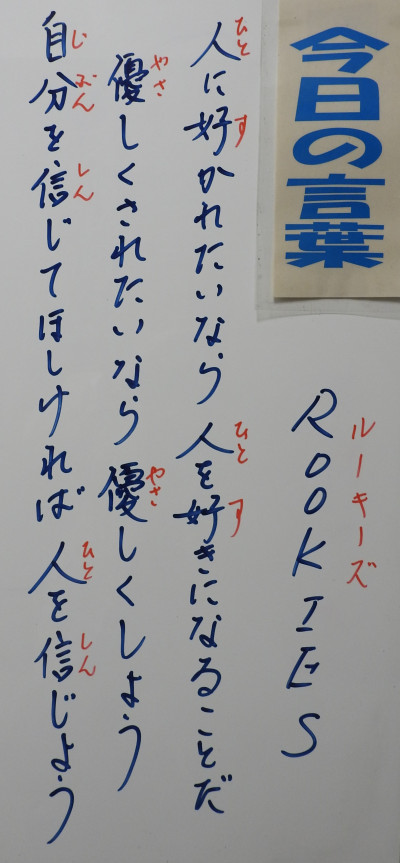 今日の言葉
ルーキーズ
ROOKIES
ひと す ひと す
人に好かれたいなら 人を好きになることだ
やさ やさ
優しくされたいなら 優しくしよう
じぶん しん ひと しん
自分を信じてほしければ 人を信じよう